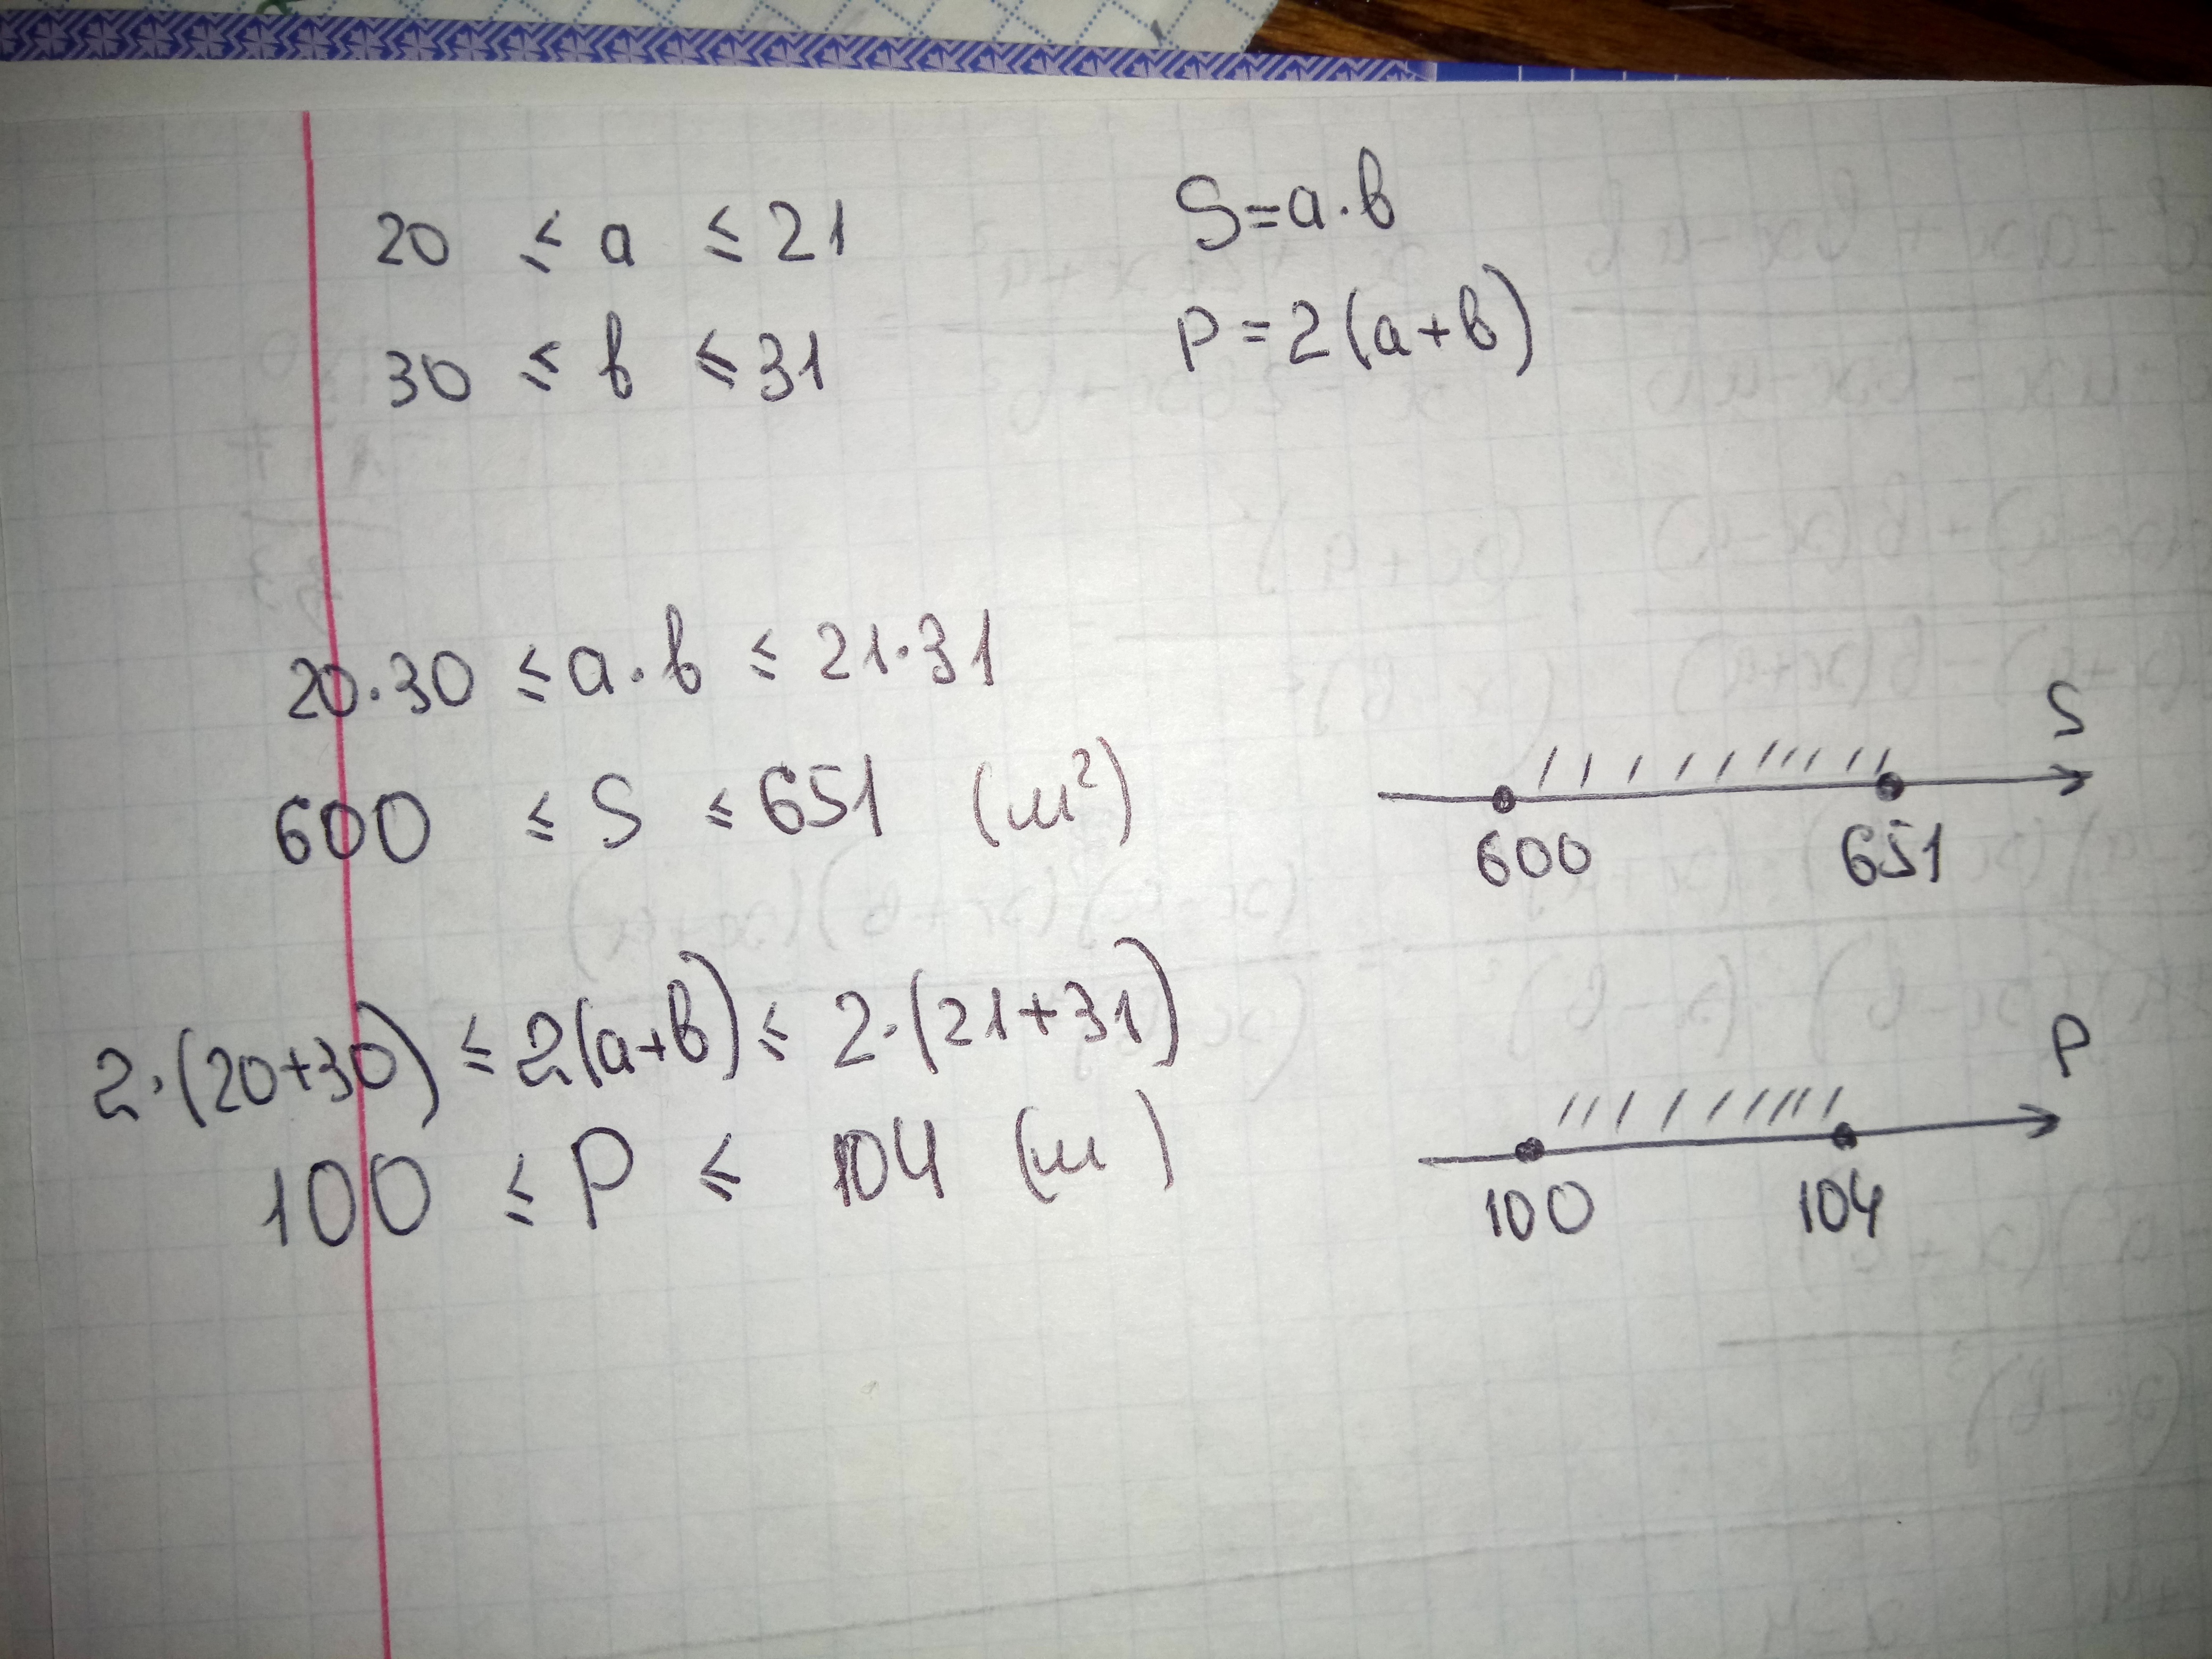 20 ≤ a ≤ 21
S=a·b
30 ≤ b ≤ 31
P=2(a+b)
20·30 ≤ a·b ≤ 21·31
600 ≤ S ≤ 651 (м²)
S
600 651
2·(20+30) ≤ 2(a+b) ≤ 2·(21+31)
100 ≤ P ≤ 104 (м)
P
100 104